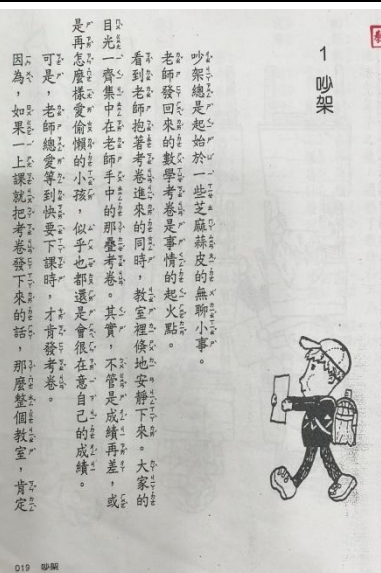 1 吵架
吵架總是起始於一些芝麻蒜皮的無聊小事。
老師發回來的數學考卷是事情的起火點。
看到老師抱著考卷進來的同時，教室裡倏地安靜下來。大家的
目光一齊集中在老師手中的那疊考卷。其實，不管是成績再差，或
是再怎麼樣愛偷懶的小孩，似乎也都還是會很在意自己的成績。
可是，老師總愛等到快要下課時，才肯發考卷。
因為，如果一上課就把考卷發下來的話，那麼整個教室，肯定
019 吵架